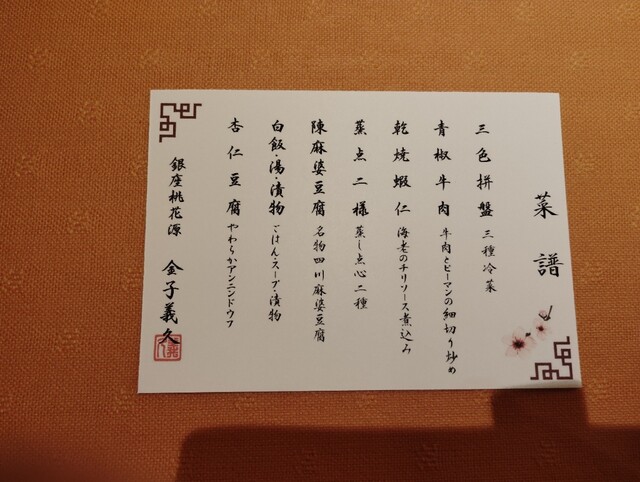 菜譜
三色拼盤 三種冷菜
青椒牛肉 牛肉とピーマンの細切り炒め
乾焼蝦仁 海老のチリソース煮込み
蒸点二様 蒸し点心二種
陳麻婆豆腐 名物四川麻婆豆腐
白飯・湯・漬物 ごはん・スープ・漬物
杏仁豆腐 やわらかアンニンドウフ
銀座桃花源 金子義久